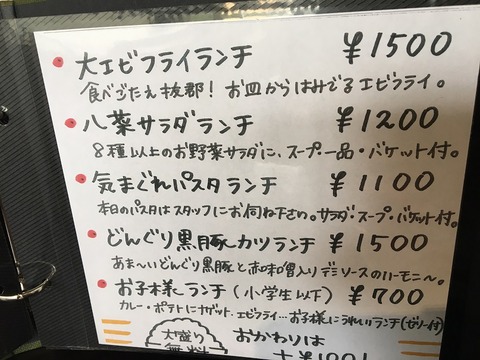 大エビフライランチ ￥1500
食べごたえ抜郡！お皿からはみでるエビフライ。
八菜サラダランチ ￥1200
8種以上のお野菜サラダに、スープ・一品・バケット付。
気まぐれパスタランチ ￥1100
本日のパスタはスタッフにお伺ね下さい。サラダ・スープ・バケット付。
どんぐり黒豚ヒカツランチ ￥1500
あま〜いどんぐり黒豚と赤味噌入りデミソースのハーモニ〜。
お子様ランチ（小学生以下） ￥700
カレー・ポテトにナゲット、エビフライ…お子様にうれしいランチ（ゼリー付）
大盛り
無料
おかわりは